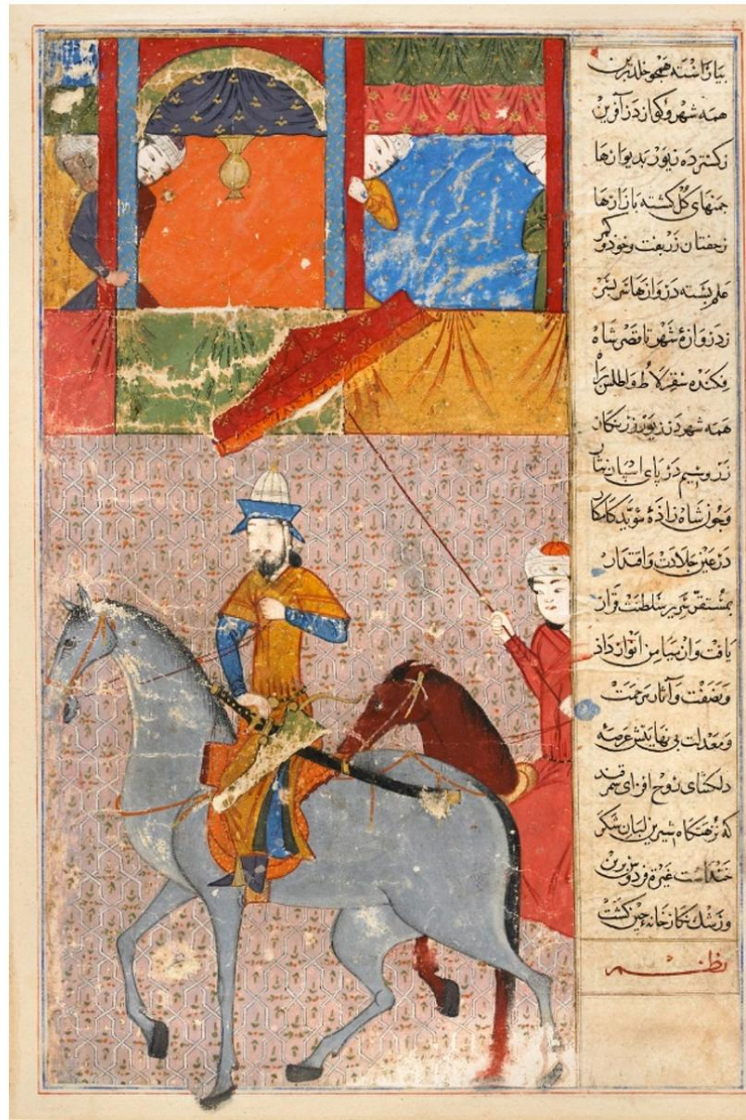 بیاراسته همچو خلد برین
همه شهر و کو از در آفرین
زکسترده زیور بدیوارها
چمنهای کل کشته بازارها
زخفتان زربفت و خود و کمر
علم بسته دروازها سر بسر
زدروازهٔ شهر تا قصر شاه
فکنده سقرلاط و اطلس براه
همه شهر در زیور زرنکار
زر و سیم در پای اسپان نثار
و چون شاه زاده مؤید کامکار
در عین جلالت و اقتدار
بمستقر سریر سلطنت قرار
یافت و از میامن انوار داد
و نصفت و آثار مرحمت
و معدلت بی نهایتش عرصه
دلکشای روح افزای سمرقند
که نزهتکاه شیرین لبان شکر
خنداست غیرت فردوس برین
و رشک نکارخانه چین کشت
نظم